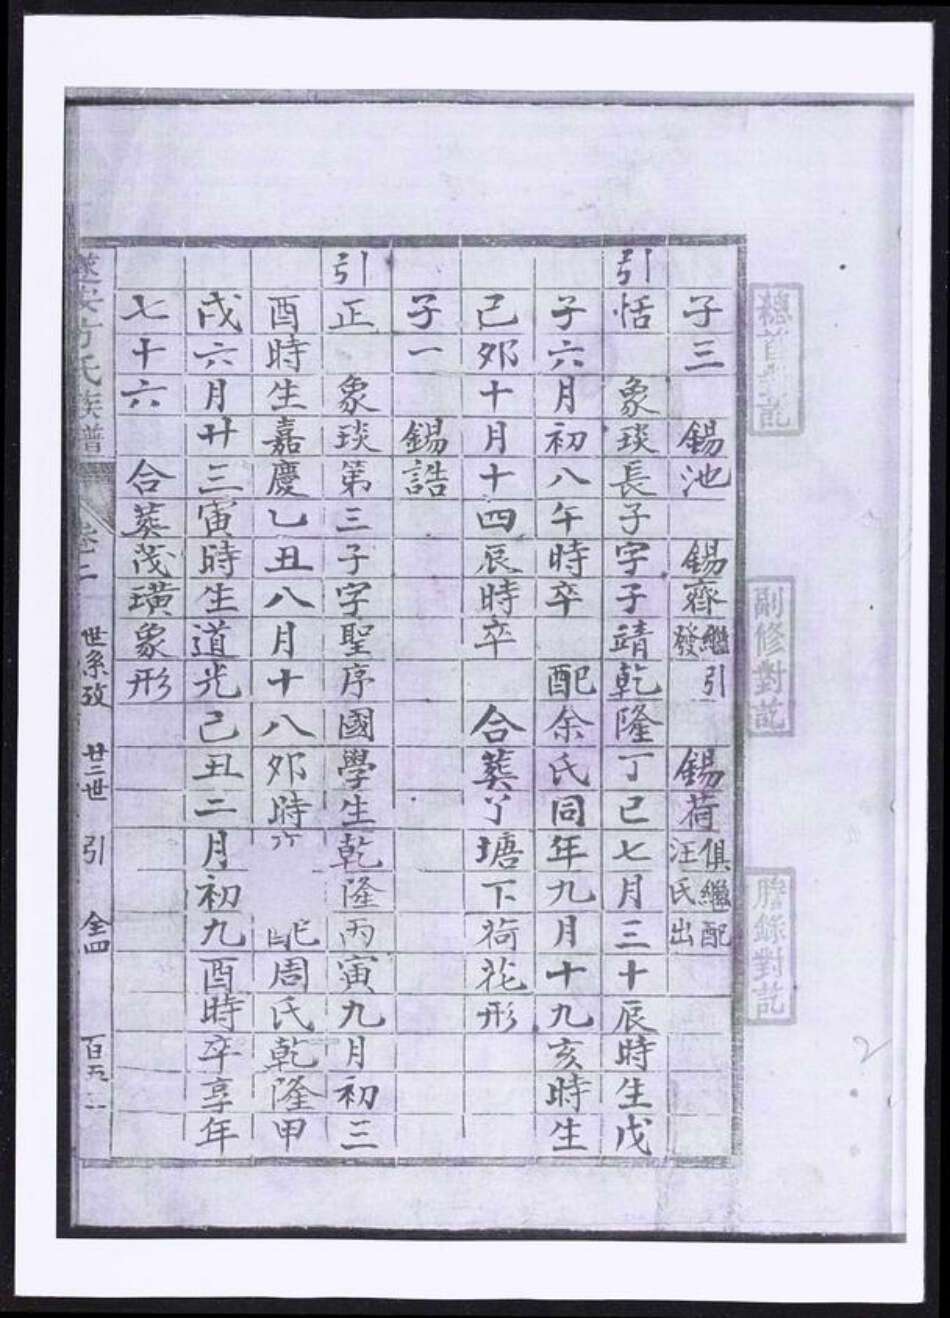 總首對記
副修對記
謄錄對記
子三 錫池 錫齋繼引發 錫荷俱繼配汪氏出
引恬 象琰長子字子靖乾隆丁巳七月三十辰時生戊
子六月初八午時卒 配余氏同年九月十九亥時生
己夘十月十四辰時卒 合葬丫塘下荷花形
子一 錫誥
引正 象琰第三子字聖序國學生乾隆丙寅九月初三
酉時生嘉慶乙丑八月十八夘時卒 配周氏乾隆甲
戌六月廿三寅時生道光己丑二月初九酉時卒享年
七十六 合葬茂璜象形
遂安方氏族譜 卷二 世系攷 廿二世 引 仝四